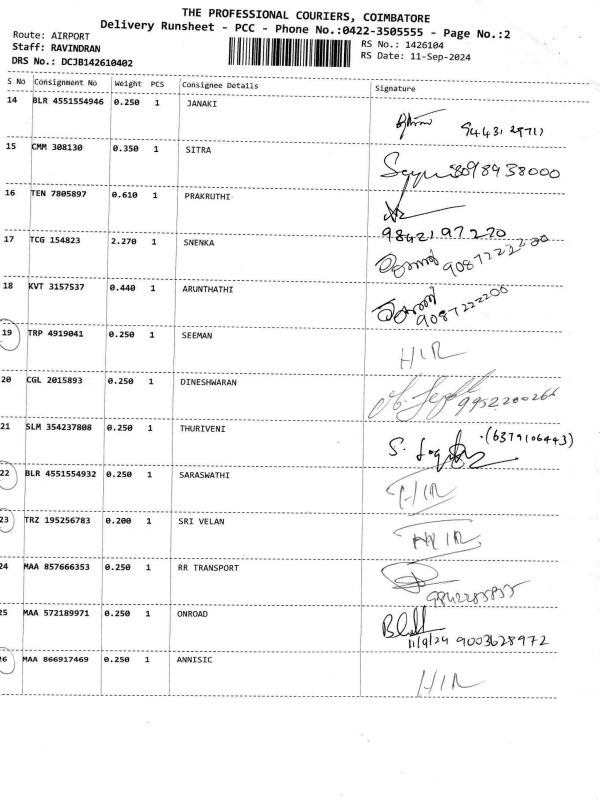 THE PROFESSIONAL COURIERS, COIMBATORE
Delivery Runsheet - PCC - Phone No.:0422-3505555 - Page No.:2
Route: AIRPORT
Staff: RAVINDRAN
DRS No.: DCJB142610402
RS No.: 1426104
RS Date: 11-Sep-2024
S No Consignment No Weight PCS Consignee Details Signature
14 BLR 4551554946 0.250 1 JANAKI
15 CMM 308130 0.350 1 SITRA 8098938000
16 TEN 7805897 0.610 1 PRAKRUTHI
9842197270
17 TCG 154823 2.270 1 SNENKA 9087222200
18 KVT 3157537 0.440 1 ARUNTHATHI 9087222200
19 TRP 4919041 0.250 1 SEEMAN HIR
20 CGL 2015893 0.250 1 DINESHWARAN 9952200266
21 SLM 354237808 0.250 1 THURIVENI S. (6379106443)
22 BLR 4551554932 0.250 1 SARASWATHI HIR
23 TRZ 195256783 0.200 1 SRI VELAN HIR
24 MAA 857666353 0.250 1 RR TRANSPORT
25 MAA 572189971 0.250 1 ONROAD
11/9/24 9003628972
26 MAA 866917469 0.250 1 ANNISIC HIR